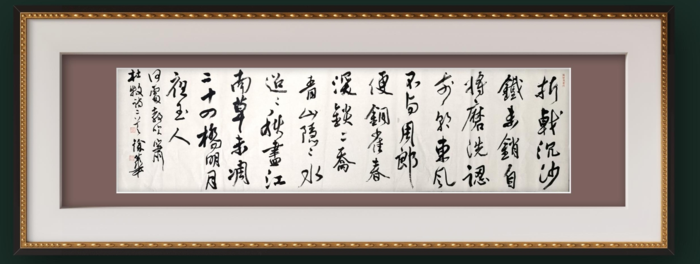 折戟沉沙
鐵未銷自
將磨洗認
前朝東風
不与周郎
便銅雀春
深鎖二喬
青山隱〻水
迢〻秋盡江
南草未凋
二十四橋明月
夜玉人
何處教吹簫
杜牧詩二首